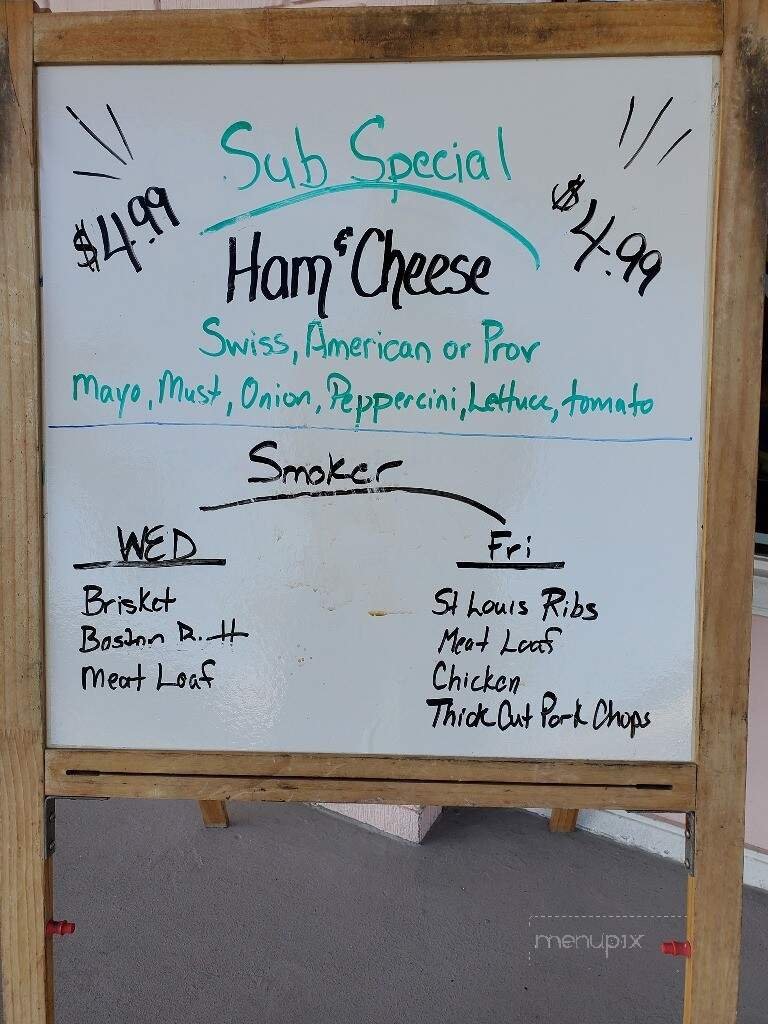 Sub Special
$4.99
$4.99
Ham & Cheese
Swiss, American or Prov
Mayo, Must, Onion, Peppercini, Lettuce, tomato
Smoker
WED
Brisket
Meat Loaf
Fri
St Louis Ribs
Meat Loaf
Chicken
Thick Cut Pork Chops
menupix